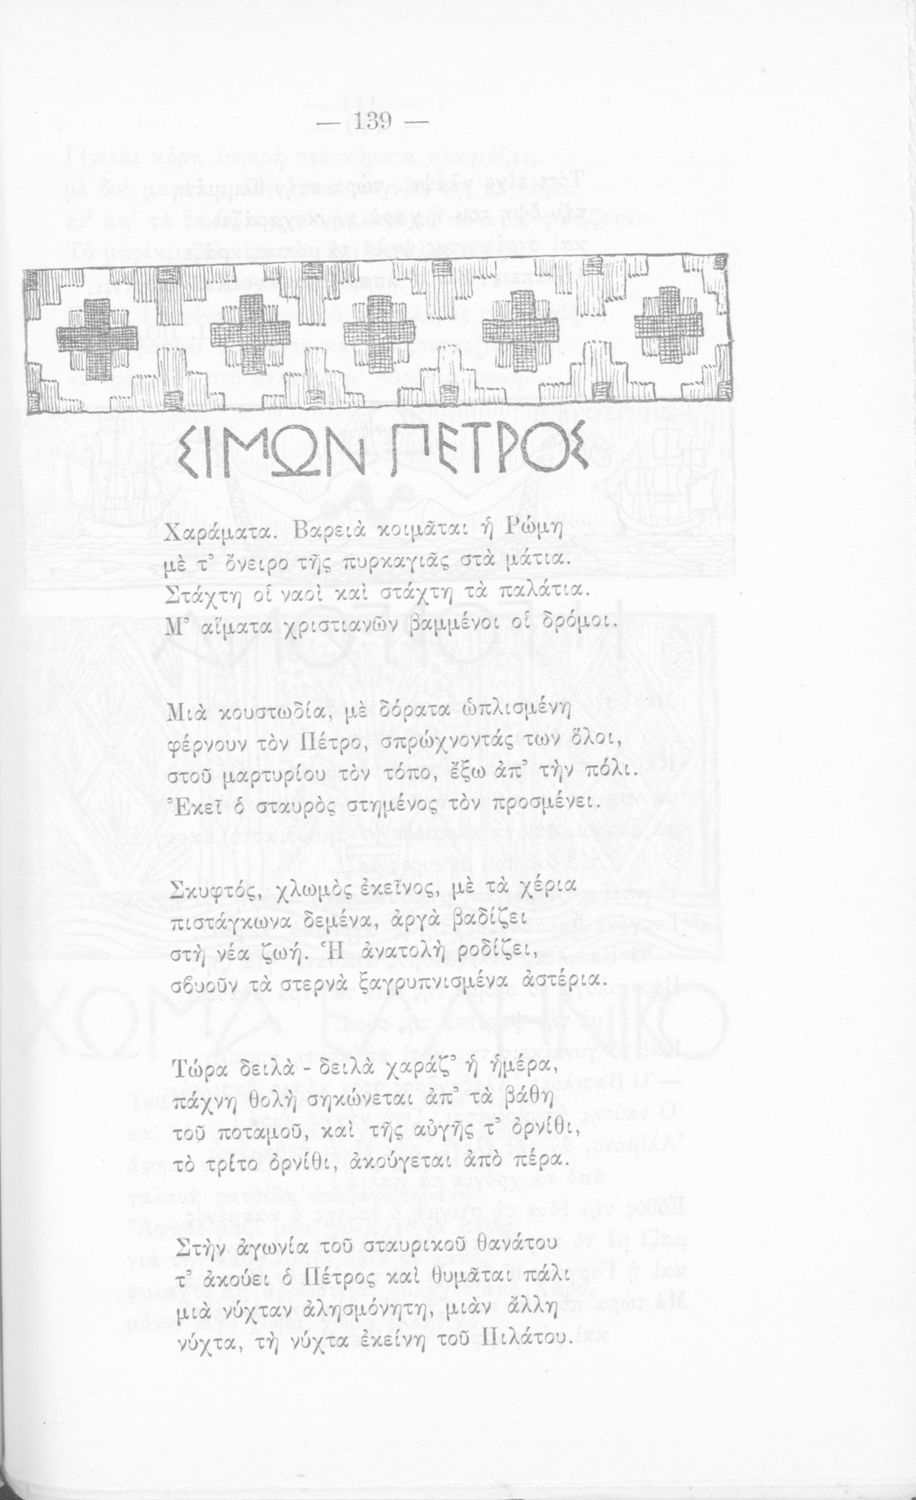 — 139 —
ΣΙΜΩΝ ΠΕΤΡΟΣ
Χαράματα. Βαρειὰ κοιμᾶται ἡ Ρώμη
μὲ τ’ ὄνειρο τῆς πυρκαγιᾶς στὰ μάτια.
Στάχτη οἱ ναοὶ καὶ στάχτη τὰ παλάτια.
Μ’ αἵματα χριστιανῶν βαμμένοι οἱ δρόμοι.
Μιὰ κουστωδία, μὲ δόρατα ὡπλισμένη
φέρνουν τὸν Πέτρο, σπρώχνοντάς των ὅλοι,
στοῦ μαρτυρίου τὸν τόπο, ἔξω ἀπ’ τὴν πόλι.
Ἐκεῖ ὁ σταυρὸς στημένος τὸν προσμένει.
Σκυφτός, χλωμὸς ἐκεῖνος, μὲ τὰ χέρια
πιστάγκωνα δεμένα, ἀργὰ βαδίζει
στὴ νέα ζωή. Ἡ ἀνατολὴ ροδίζει,
σβυοῦν τὰ στερνὰ ξαγρυπνισμένα ἀστέρια.
Τώρα δειλὰ - δειλὰ χαράζ’ ἡ ἡμέρα,
πάχνη θολὴ σηκώνεται ἀπ’ τὰ βάθη
τοῦ ποταμοῦ, καὶ τῆς αὐγῆς τ’ ὀρνίθι,
τὸ τρίτο ὀρνίθι, ἀκούγεται ἀπὸ πέρα.
Στὴν ἀγωνία τοῦ σταυρικοῦ θανάτου
τ’ ἀκούει ὁ Πέτρος καὶ θυμᾶται πάλι
μιὰ νύχταν ἀλησμόνητη, μιὰν ἄλλη
νύχτα, τὴ νύχτα ἐκείνη τοῦ Πιλάτου.